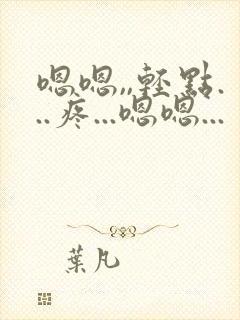 嗯嗯,,輕點.
..疼...嗯嗯...
葉凡